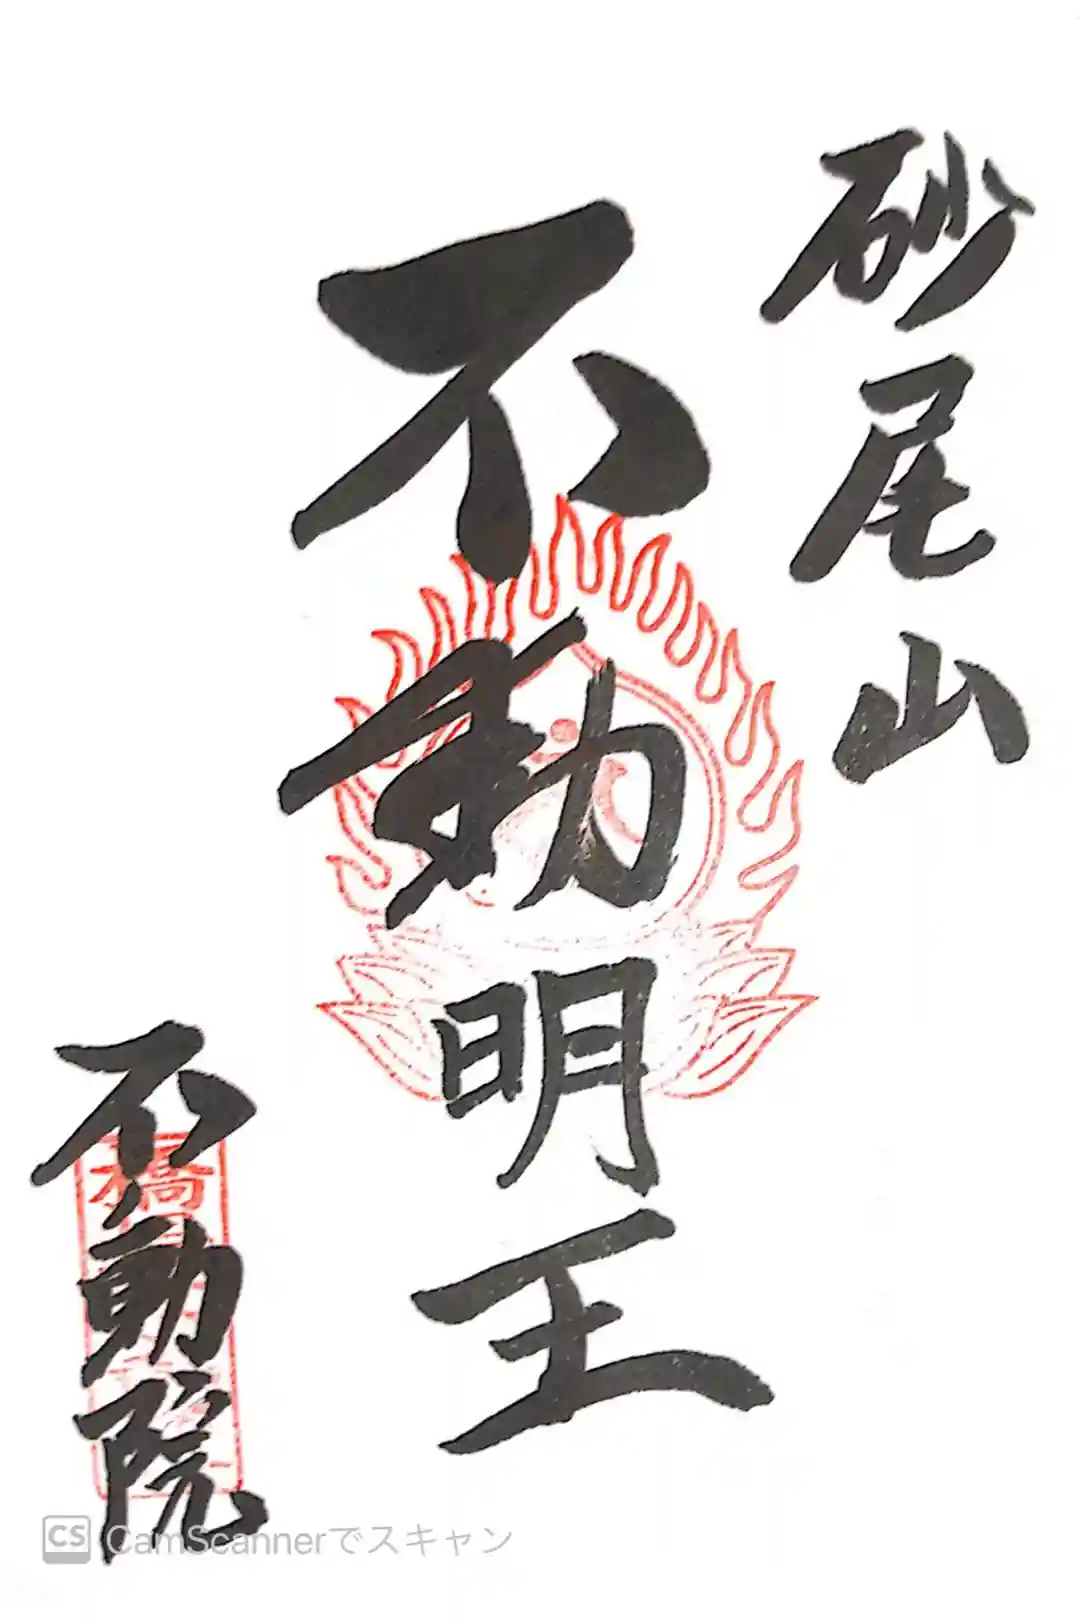 砂尾山
不動明王
不動院
橋
CS CamScannerでスキャン